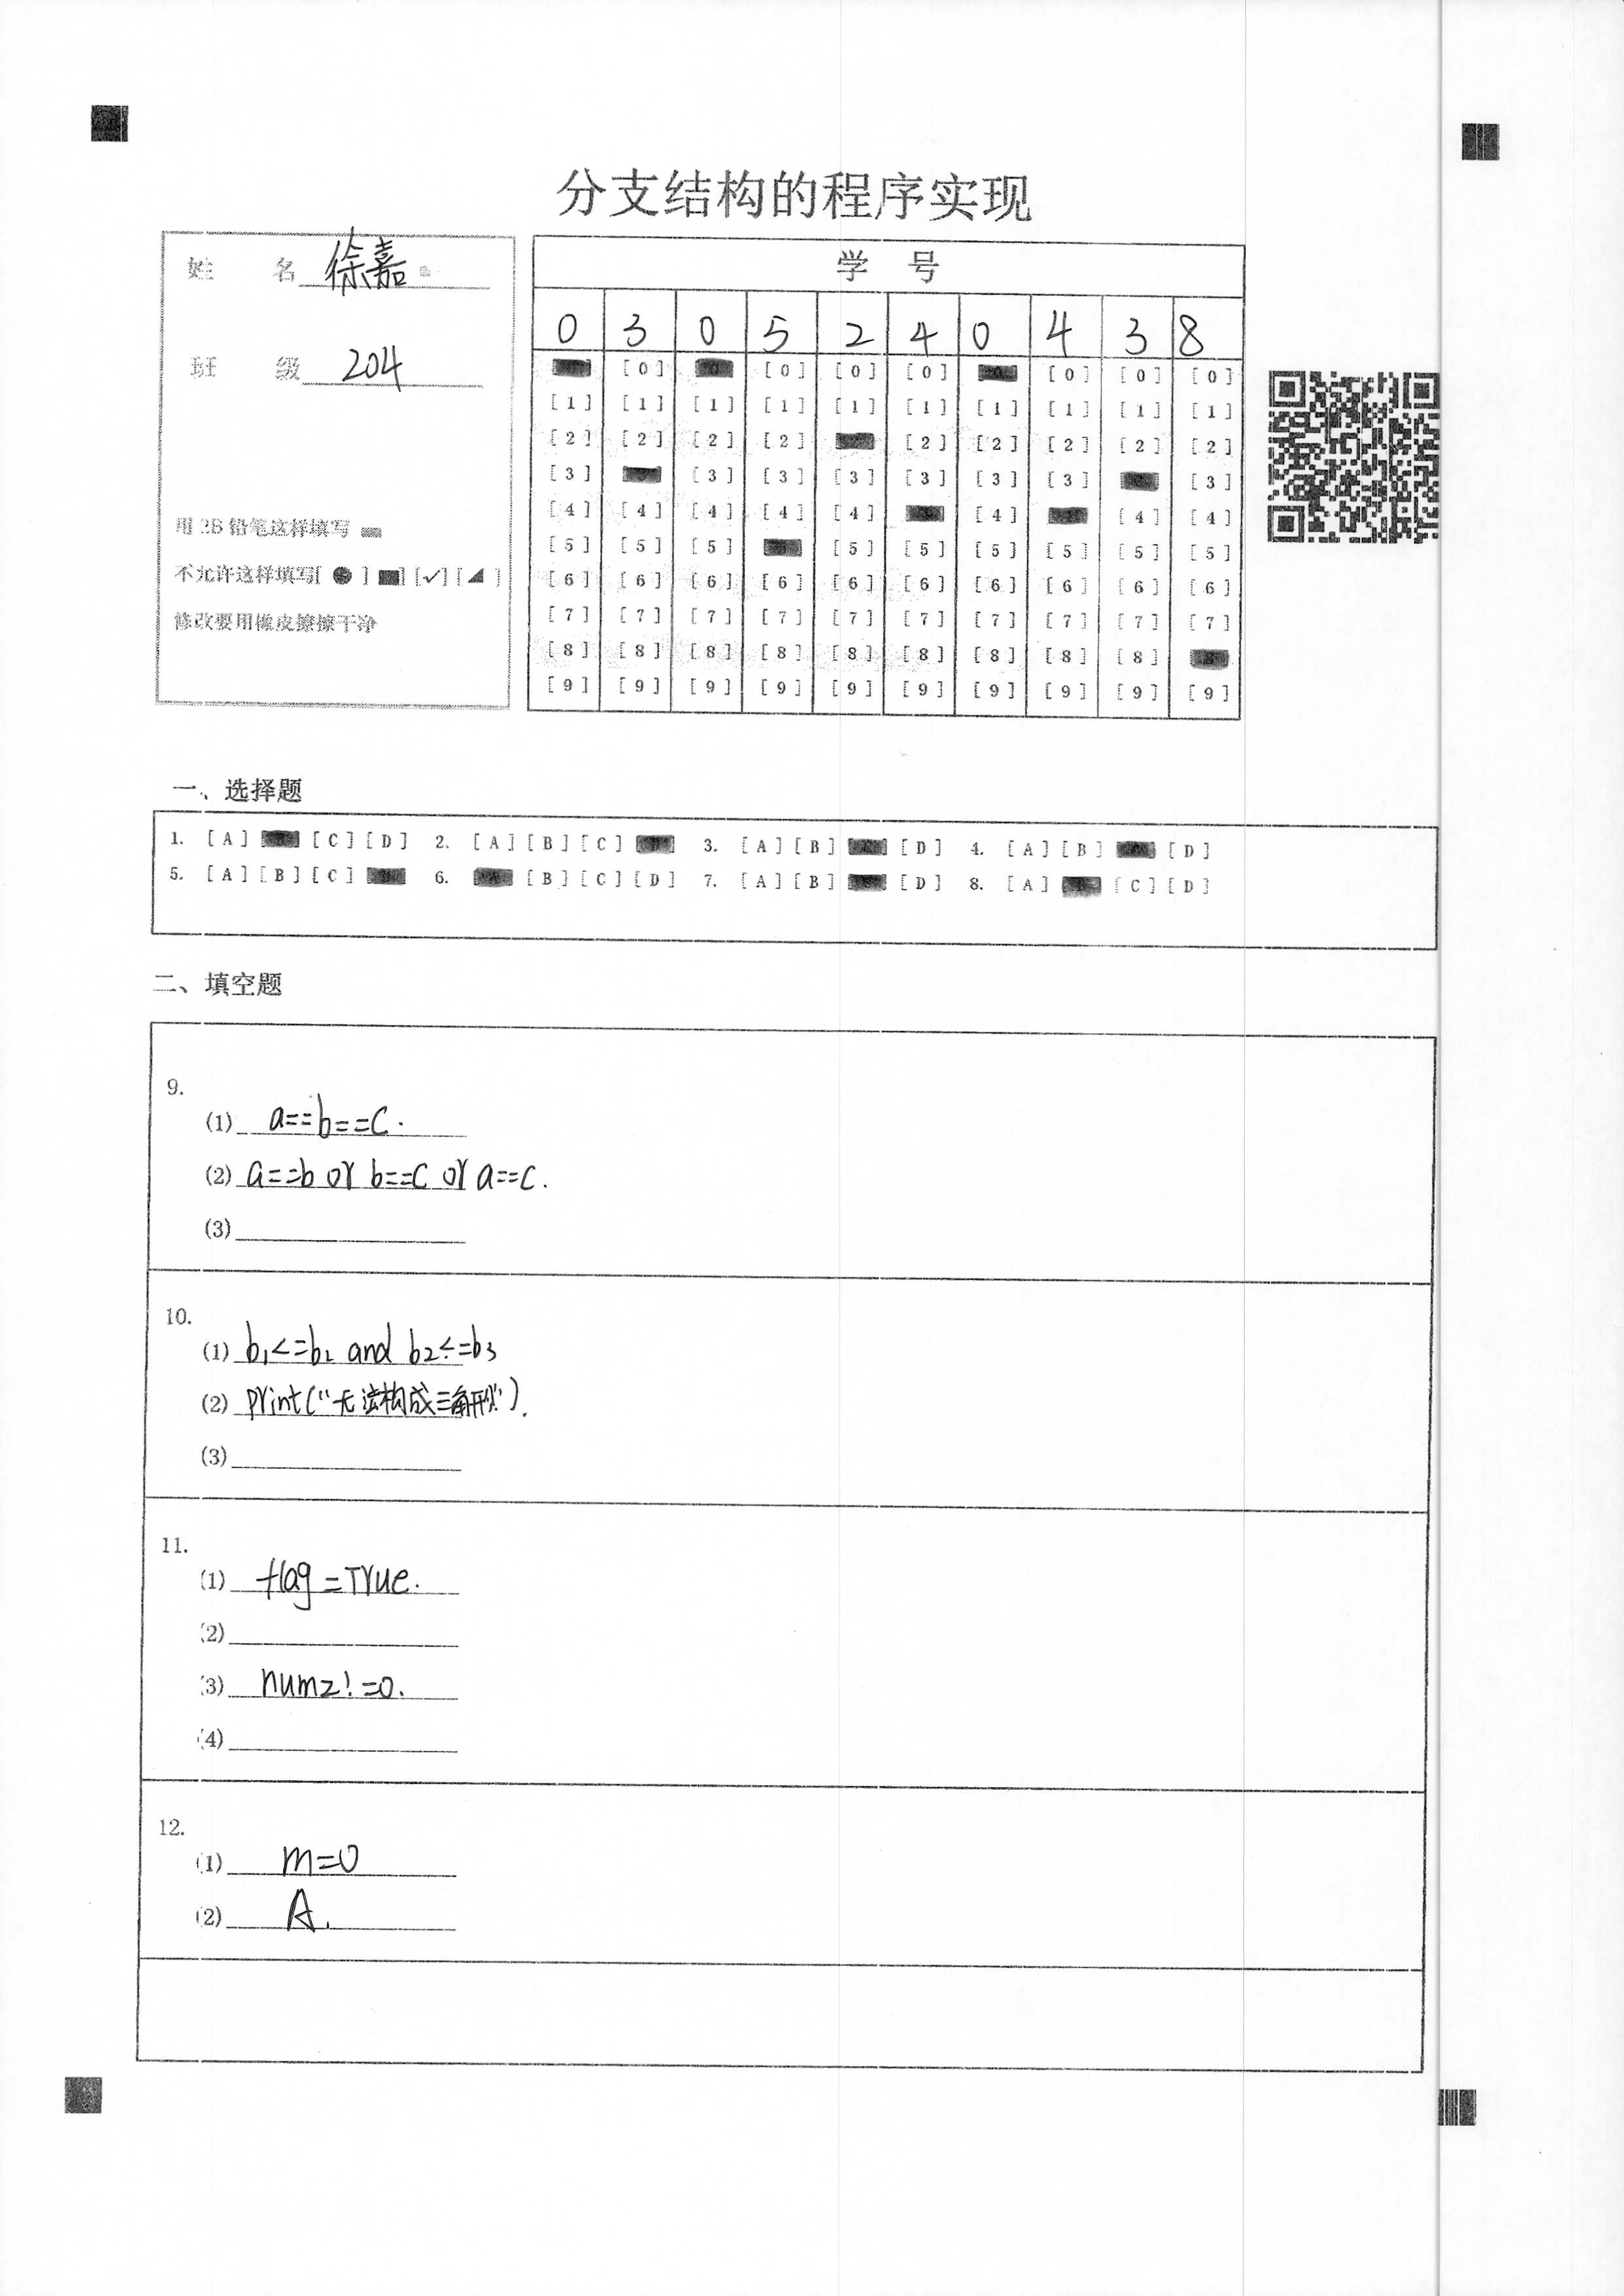 分支结构的程序实现
姓 名 徐嘉
班 级 204
用 2B 铅笔这样填写
不允许这样填写[ ● ] [■] [✓] [◢ ]
修改要用橡皮擦擦干净
学 号
0 3 0 5 2 4 0 4 3 8
[0] [0] [0] [0] [0] [0] [0]
[1] [1] [1] [1] [1] [1] [1] [1] [1] [1]
[2] [2] [2] [2] [2] [2] [2] [2] [2]
[3] [3] [3] [3] [3] [3] [3] [3]
[4] [4] [4] [4] [4] [4] [4] [4]
[5] [5] [5] [5] [5] [5] [5] [5] [5]
[6] [6] [6] [6] [6] [6] [6] [6] [6] [6]
[7] [7] [7] [7] [7] [7] [7] [7] [7] [7]
[8] [8] [8] [8] [8] [8] [8] [8] [8]
[9] [9] [9] [9] [9] [9] [9] [9] [9] [9]
一、选择题
1. [A] [C] [D] 2. [A] [B] [C] 3. [A] [B] [D] 4. [A] [B] [D]
5. [A] [B] [C] 6. [B] [C] [D] 7. [A] [B] [D] 8. [A] [C] [D]
二、填空题
9.
(1) a==b==c.
(2) a==b or b==c or a==c.
(3)
10.
(1) b1<=b2 and b2<=b3
(2) print("无法构成三角形").
(3)
11.
(1) flag=True.
(2)
(3) num2!=0.
(4)
12.
(1) m=0
(2) A.